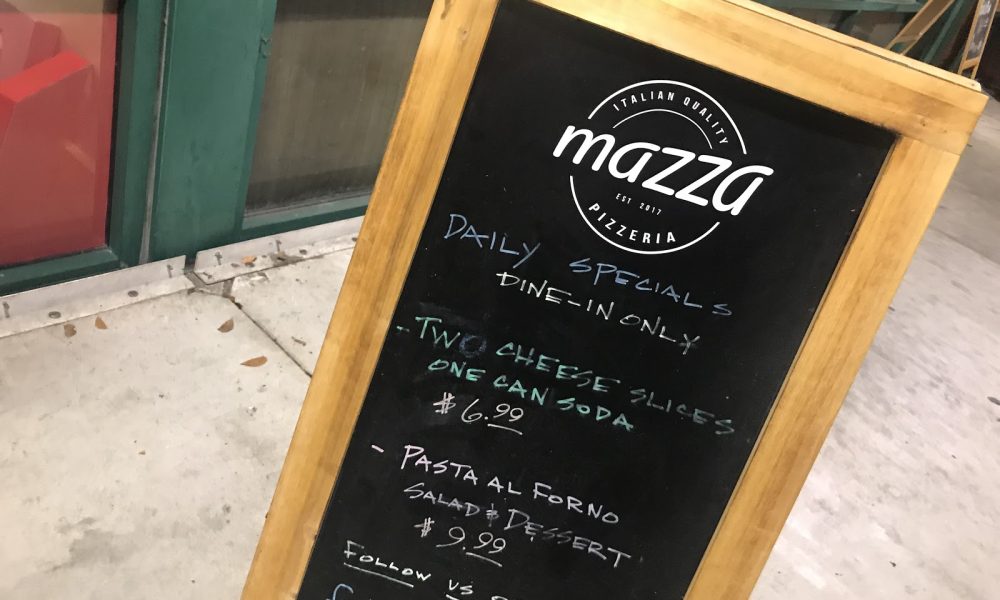 ITALIAN QUALITY
mazza
EST 2017
PIZZERIA
DAILY SPECIALS
DINE-IN ONLY
- TWO CHEESE SLICES
ONE CAN SODA
$6.99
- PASTA AL FORNO
SALAD & DESSERT
$9.99
FOLLOW US